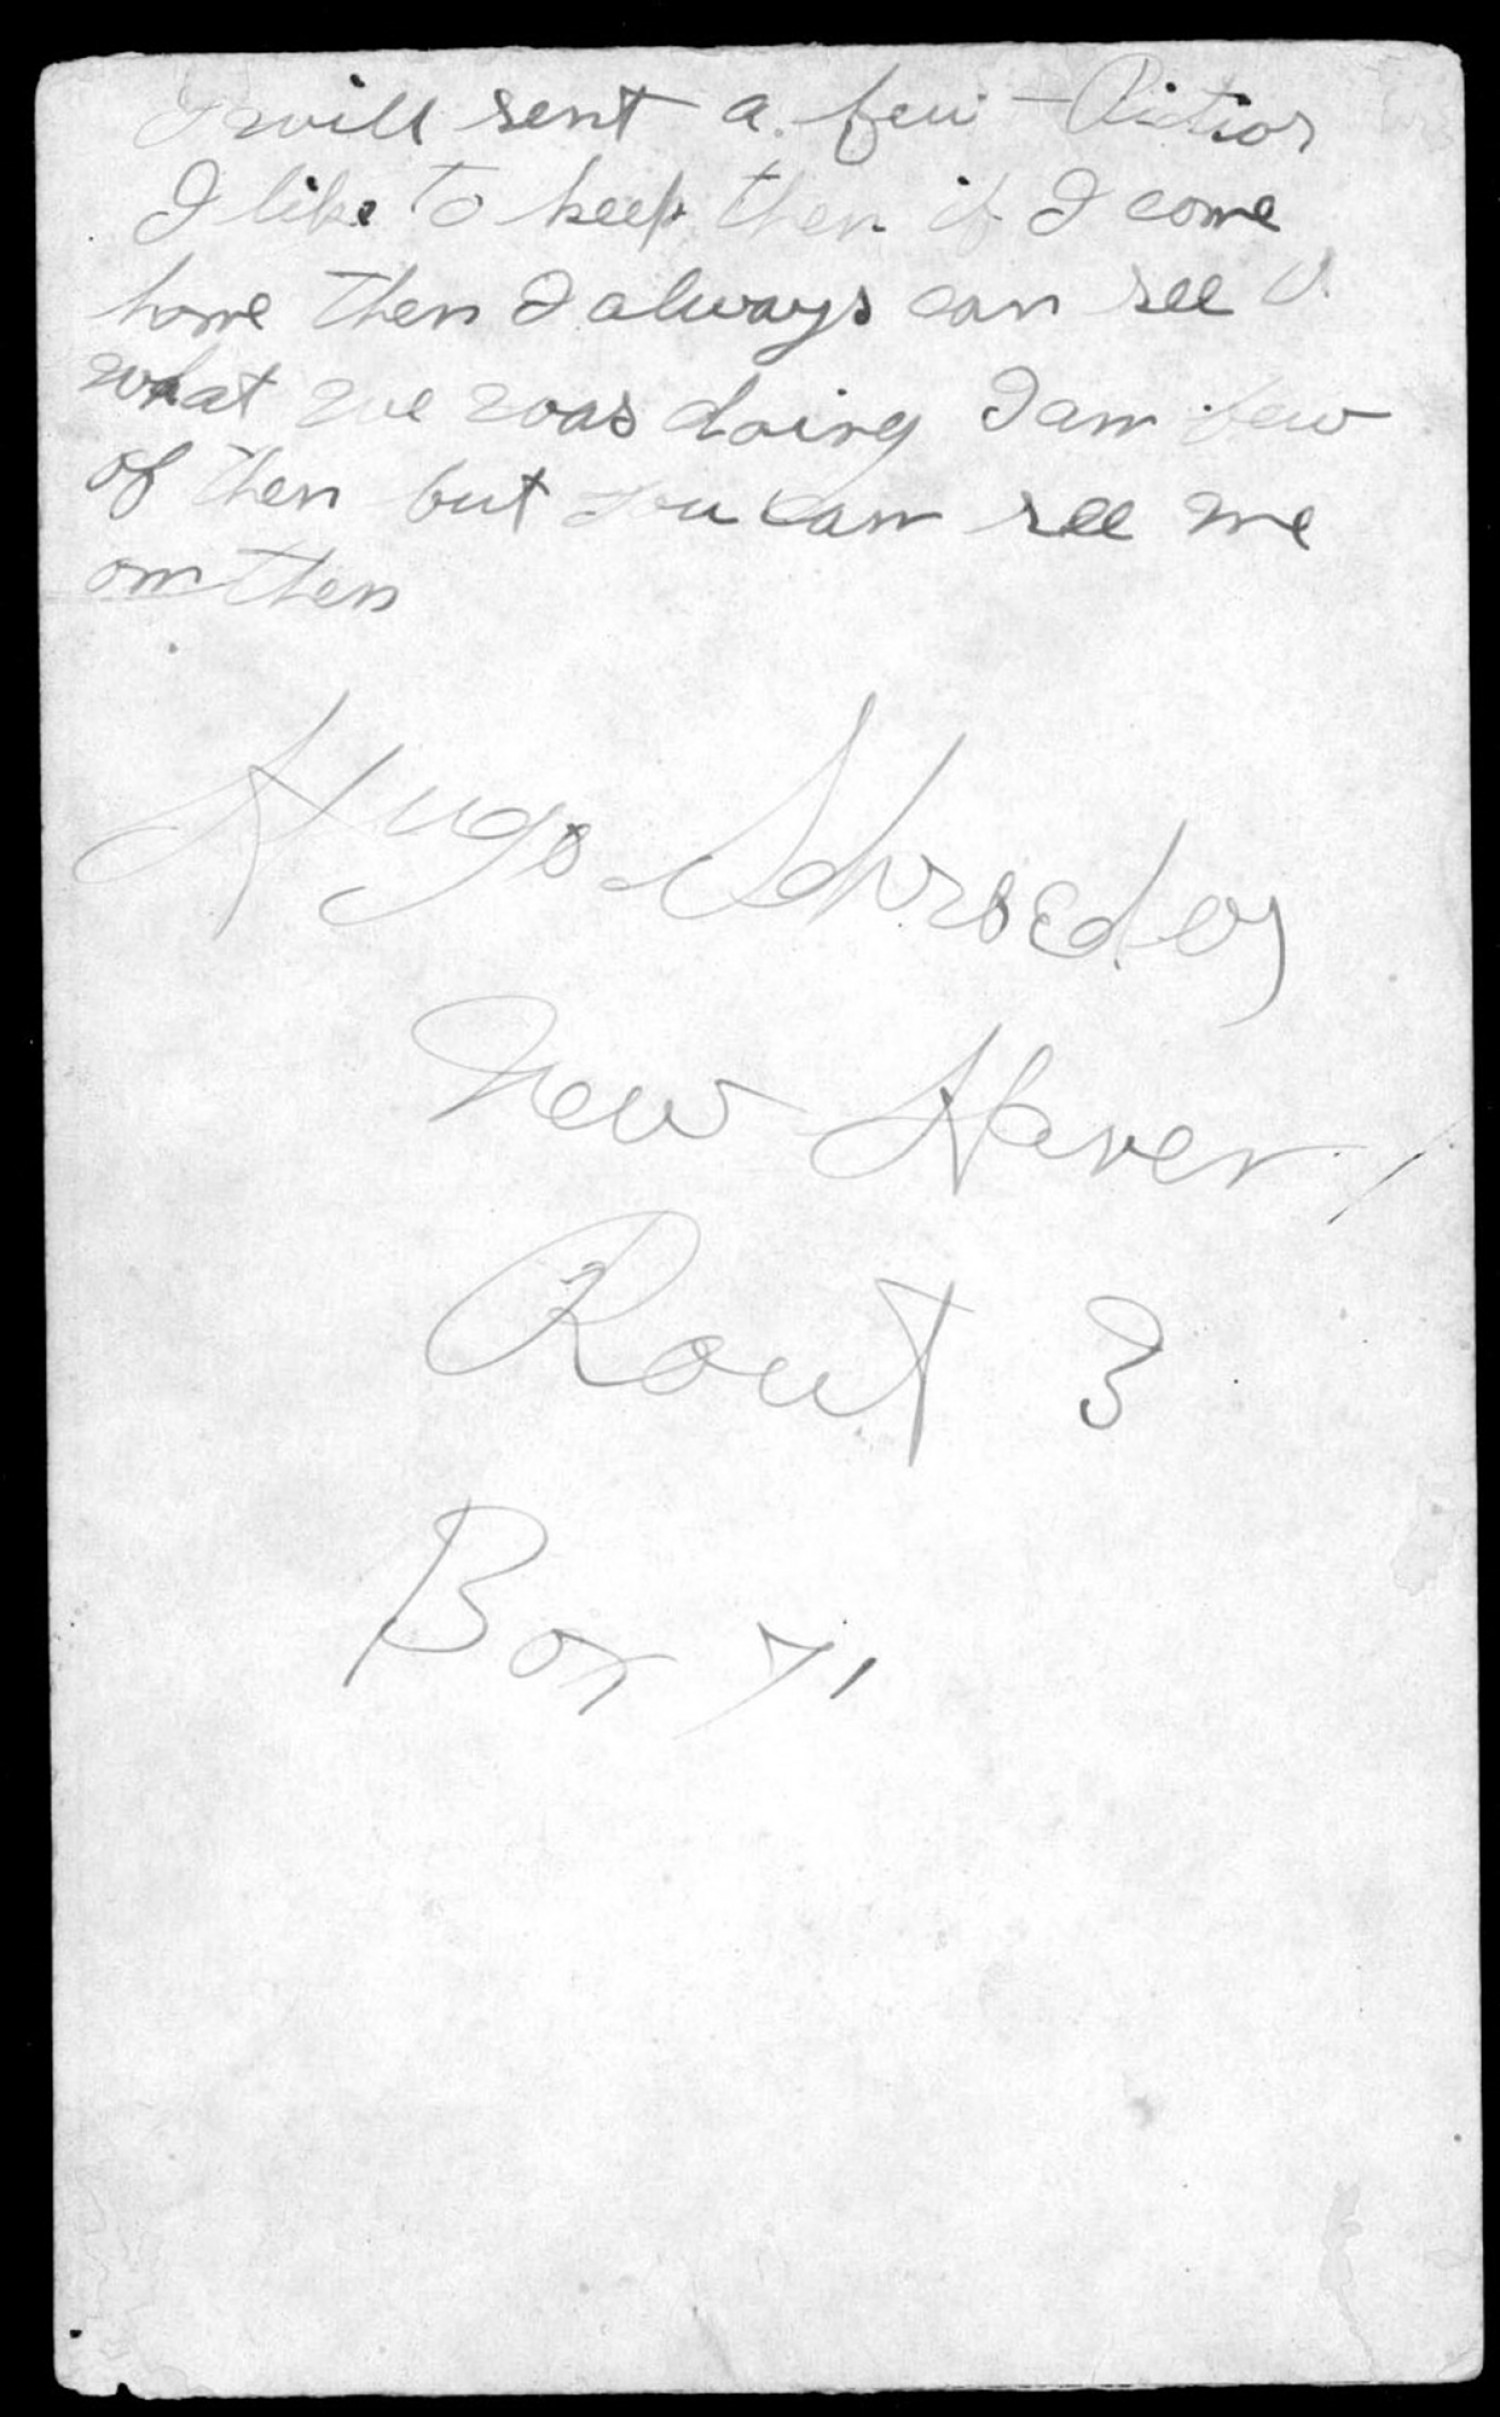 I will sent a few Pictior
I like to keep then if I come
home then I always can see
what we was doing I am few
of then but you can see me
on then
Hugo Schroeder
New Haven
Rout 3
Box 71